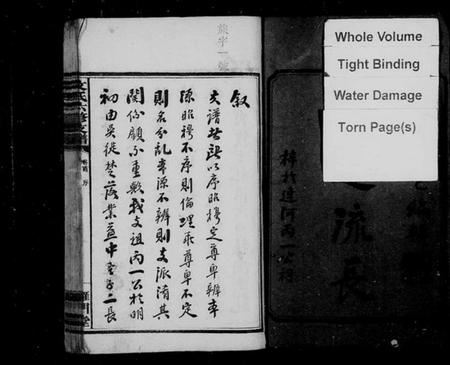 Whole Volume
Tight Binding
Water Damage
Torn Page(s)
叙
夫譜者所以序昭穆定尊卑辨本
源昭穆不序則倫理乖尊卑不定
則名分亂本源不辨則支派淆其
關係顧不重歟我支祖丙一公於明
初由吳徙楚落業益中至子二長
梓於建河丙一公祠
流長